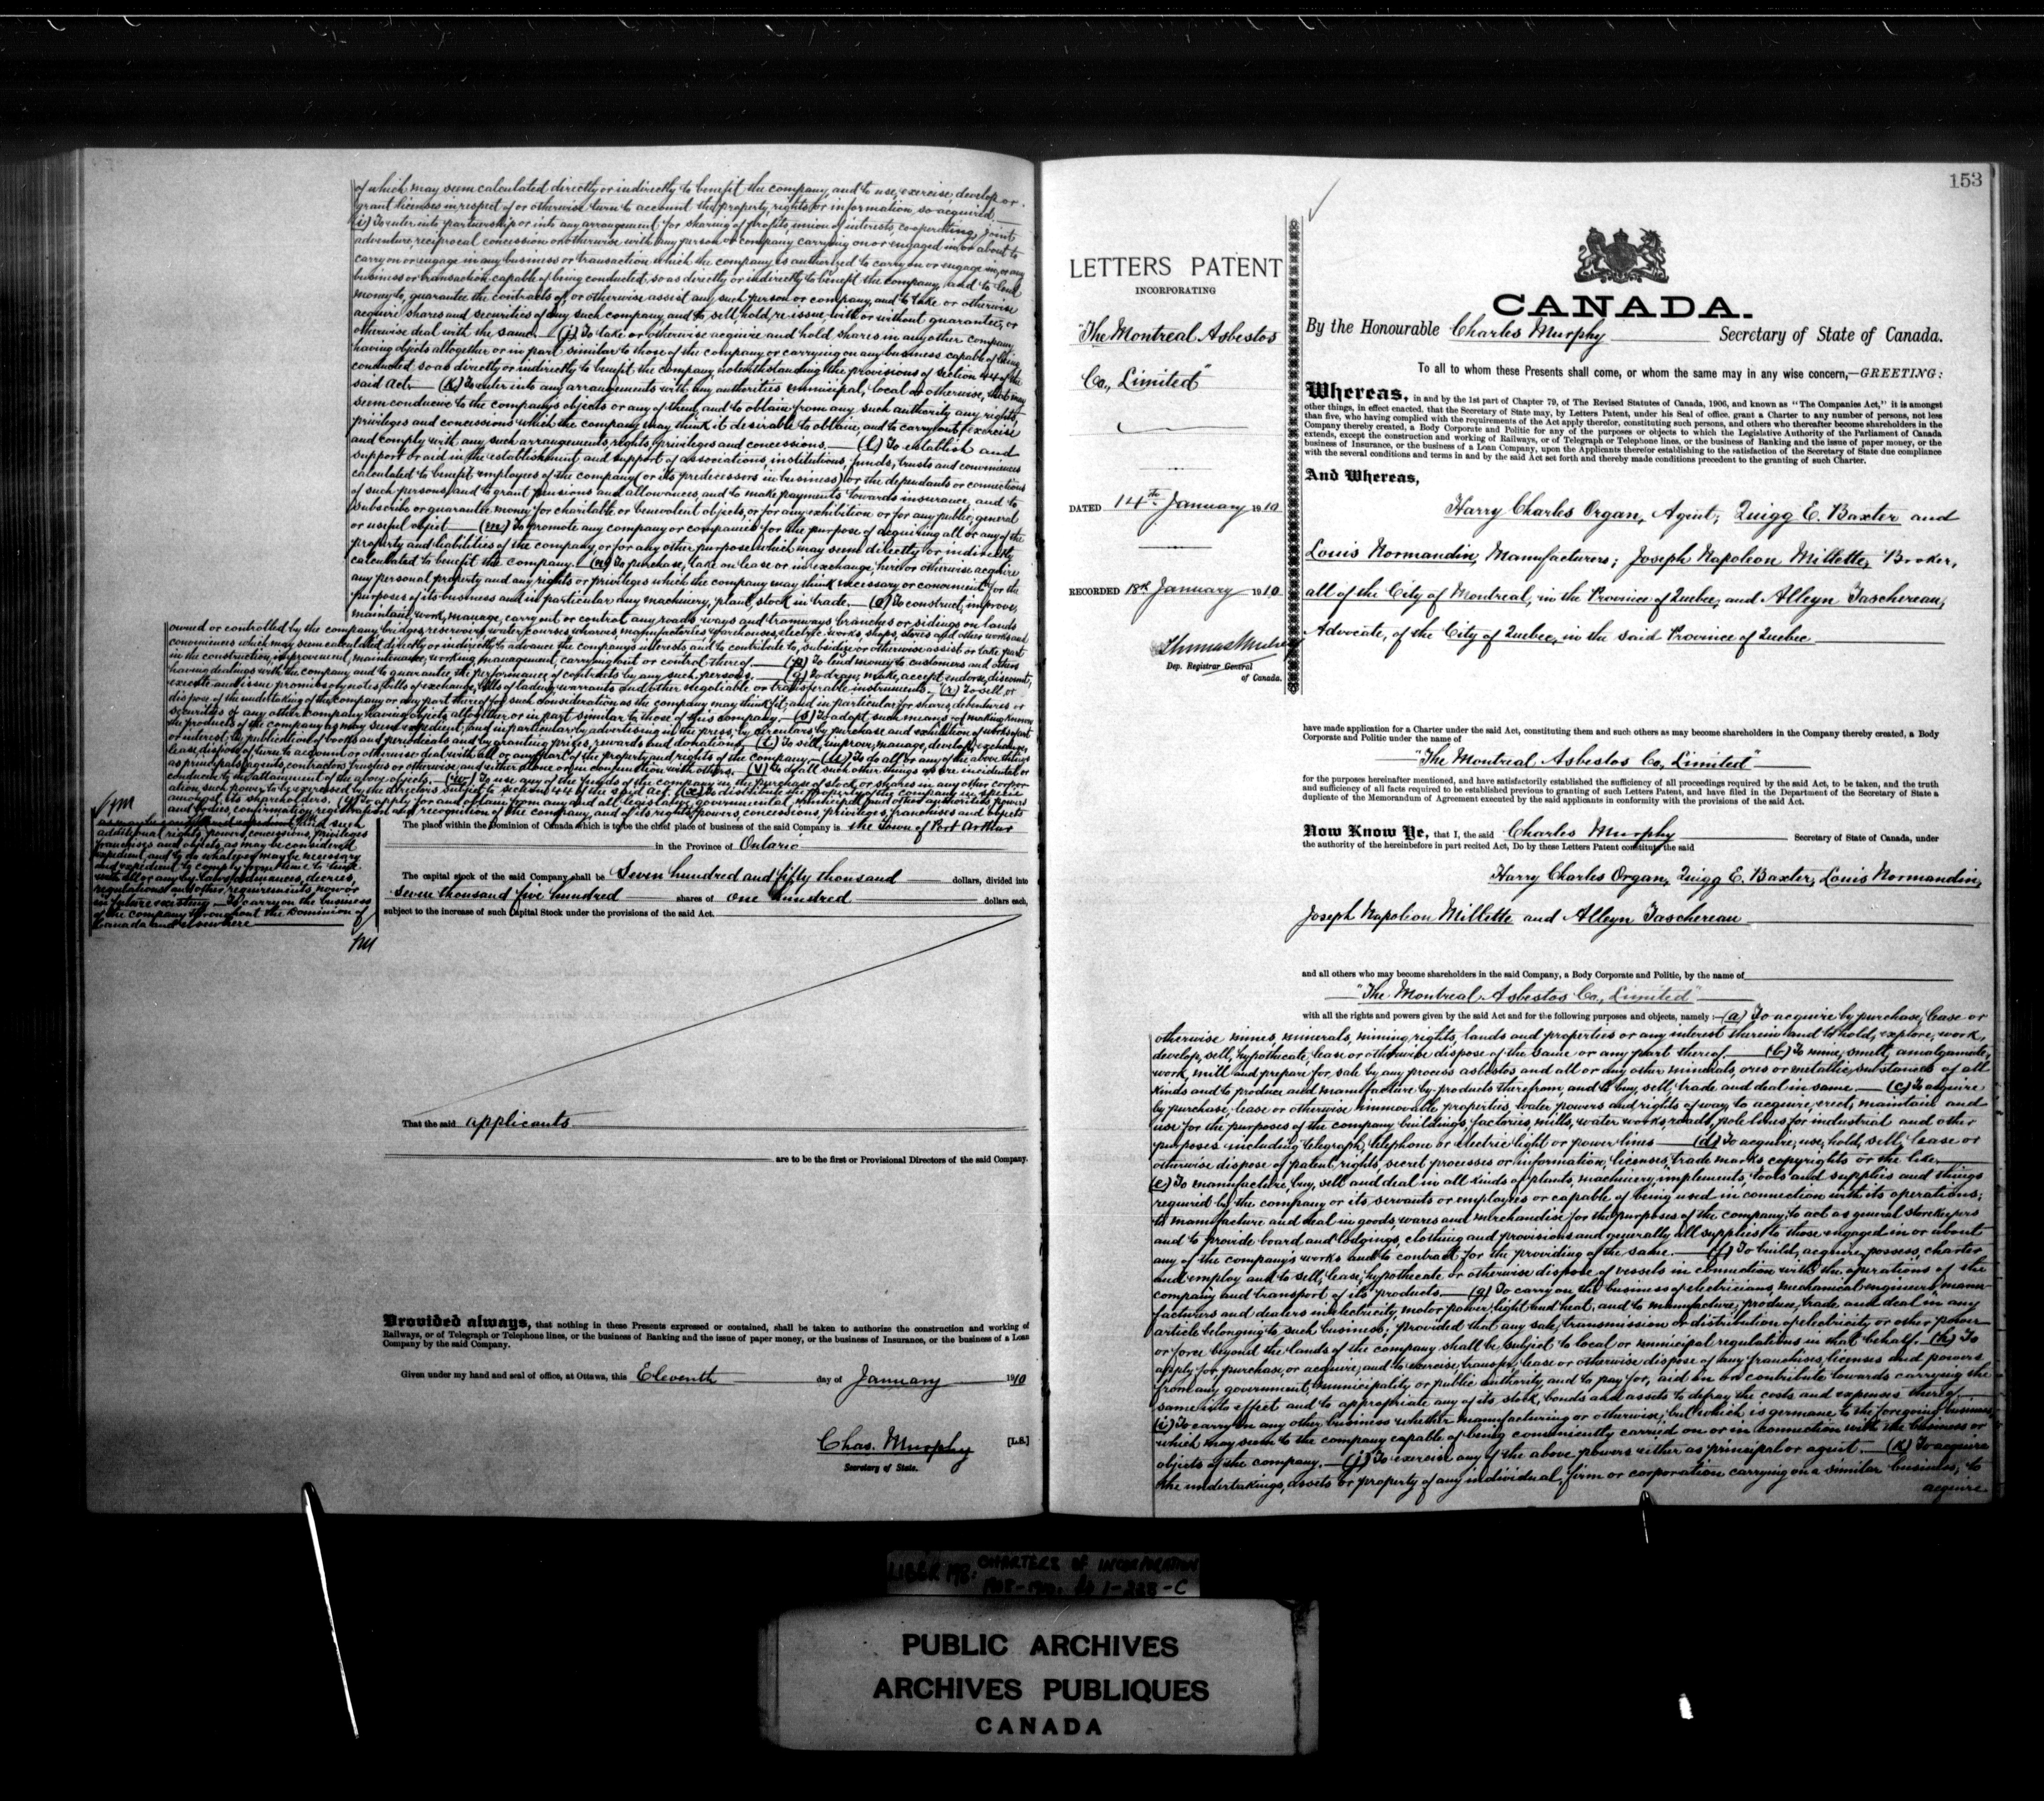 of which may seem calculated directly or indirectly to benefit the company, and to use, exercise, develop or
grant licenses in respect of or otherwise turn to account the property, rights or information so acquired.
(i) To enter into partnership or into any arrangement for sharing of profits, union of interests, co-operating, joint
adventure, reciprocal concession or otherwise with any person or company carrying on or engaged in or about to
carry on or engage in any business or transaction which the company is authorized to carry on or engage in, or any
business or transaction capable of being conducted so as directly or indirectly to benefit the company, and to lend
money to, guarantee the contracts of, or otherwise assist any such person or company, and to take or otherwise
acquire shares and securities of any such company, and to sell, hold, re-issue, with or without guarantee, or
otherwise deal with the same. (j) To take or otherwise acquire and hold shares in any other company
having objects altogether or in part similar to those of the company or carrying on any business capable of being
conducted so as directly or indirectly to benefit the company notwithstanding the provisions of section 44 of the
said Act. (k) To enter into any arrangements with any authorities municipal, local or otherwise, that may
seem conducive to the company's objects or any of them, and to obtain from any such authority any rights,
privileges and concessions which the company may think it desirable to obtain, and to carry out, exercise
and comply with any such arrangements, rights, privileges and concessions. (l) To establish and
support or aid in the establishment and support of associations, institutions, funds, trusts and conveniences
calculated to benefit employees of the company (or its predecessors in business) or the dependants or connections
of such persons, and to grant pensions and allowances, and to make payments towards insurance, and to
subscribe or guarantee money for charitable or benevolent objects, or for any exhibition or for any public, general
or useful object (m) To promote any company or companies for the purpose of acquiring all or any of the
property and liabilities of the company, or for any other purpose which may seem directly or indirectly
calculated to benefit the company. (n) To purchase, take on lease or in exchange, hire or otherwise acquire
any personal property and any rights or privileges which the company may think necessary or convenient for the
purposes of its business and in particular any machinery, plant, stock in trade. (o) To construct, improve,
maintain, work, manage, carry out or control any roads, ways and tramways, branches or sidings on lands
owned or controlled by the company, bridges, reservoirs, water courses, wharves, manufactories, warehouses, electric works, shops, stores and other works and
conveniences which may seem calculated directly or indirectly to advance the company's interests and to contribute to, subsidize or otherwise assist or take part
in the construction, improvement, maintenance, working, management, carrying out or control thereof. (p) To lend money to customers and others
having dealings with the company and to guarantee the performance of contracts by any such persons. (q) To draw, make, accept, endorse, discount,
execute and issue promissory notes, bills of exchange, bills of lading, warrants and other negotiable or transferable instruments. (r) To sell or
dispose of the undertaking of the company or any part thereof for such consideration as the company may think fit, and in particular for shares, debentures or
securities of any other company having objects altogether or in part similar to those of this company. (s) To adopt such means of making known
the products of the company as may seem expedient, and in particular by advertising in the press, by circulars, by purchase and exhibition of works of art
or interest, by publication of books and periodicals and by granting prizes, rewards and donations. (t) To sell, improve, manage, develop, exchange,
lease, dispose of, turn to account or otherwise deal with all or any part of the property and rights of the company. (u) To do all or any of the above things
as principals, agents, contractors, trustees or otherwise, and either alone or in conjunction with others. (v) To do all such other things as are incidental or
conducive to the attainment of the above objects. (w) To use any of the funds of the company in the purchase of stock or shares in any other corpor-
ation, such power to be exercised by the directors subject to section 44 of the said Act. (x) To distribute the property of the company in specie
amongst its shareholders. (y) To apply for and obtain from any and all legislatures, governmental, municipal and other authorities powers
and bodies, confirmation, registration and recognition of the company, and of its rights, powers, concessions, privileges, franchises and objects
as may be considered expedient, and such
additional rights, powers, concessions, privileges
franchises and objects, as may be considered
expedient, and to do whatever may be necessary
and expedient to comply from time to time
with all or any by-laws, ordinances, decrees,
regulations and other requirements, now or
in future existing. To carry on the business
of the company throughout the Dominion of
Canada and elsewhere
The place within the Dominion of Canada which is to be the chief place of business of the said Company is the Town of Port Arthur
in the Province of Ontario
The capital stock of the said Company shall be Seven hundred and fifty thousand dollars, divided into
seven thousand five hundred shares of one hundred dollars each,
subject to the increase of such Capital Stock under the provisions of the said Act.
That the said applicants
are to be the first or Provisional Directors of the said Company.
Provided always, that nothing in these Presents expressed or contained, shall be taken to authorize the construction and working of
Railways, or of Telegraph or Telephone lines, or the business of Banking and the issue of paper money, or the business of Insurance, or the business of a Loan
Company by the said Company.
Given under my hand and seal of office, at Ottawa, this Eleventh day of January 1910
Chas. Murphy [L.S.]
Secretary of State.
153
LETTERS PATENT
INCORPORATING
"The Montreal Asbestos
Co., Limited"
DATED 14th January 1910
RECORDED 18th January 1910
Thomas Mulvey
Dep. Registrar General
of Canada.
CANADA.
By the Honourable Charles Murphy Secretary of State of Canada.
To all to whom these Presents shall come, or whom the same may in any wise concern,—GREETING:
Whereas, in and by the 1st part of Chapter 79, of The Revised Statutes of Canada, 1906, and known as "The Companies Act," it is amongst
other things, in effect enacted, that the Secretary of State may, by Letters Patent, under his Seal of office, grant a Charter to any number of persons, not less
than five, who having complied with the requirements of the Act apply therefor, constituting such persons, and others who thereafter become shareholders in the
Company thereby created, a Body Corporate and Politic for any of the purposes or objects to which the Legislative Authority of the Parliament of Canada
extends, except the construction and working of Railways, or of Telegraph or Telephone lines, or the business of Banking and the issue of paper money, or the
business of Insurance, or the business of a Loan Company, upon the Applicants therefor establishing to the satisfaction of the Secretary of State due compliance
with the several conditions and terms in and by the said Act set forth and thereby made conditions precedent to the granting of such Charter.
And Whereas,
Harry Charles Organ, Agent; Quigg E. Baxter and
Louis Normandin, Manufacturers; Joseph Napoleon Millette, Broker,
all of the City of Montreal, in the Province of Quebec, and Alleyn Taschereau,
Advocate, of the City of Quebec, in the said Province of Quebec
have made application for a Charter under the said Act, constituting them and such others as may become shareholders in the Company thereby created, a Body
Corporate and Politic under the name of
"The Montreal Asbestos Co., Limited"
for the purposes hereinafter mentioned, and have satisfactorily established the sufficiency of all proceedings required by the said Act, to be taken, and the truth
and sufficiency of all facts required to be established previous to granting of such Letters Patent, and have filed in the Department of the Secretary of State a
duplicate of the Memorandum of Agreement executed by the said applicants in conformity with the provisions of the said Act.
Now Know Ye, that I, the said Charles Murphy Secretary of State of Canada, under
the authority of the hereinbefore in part recited Act, Do by these Letters Patent constitute the said
Harry Charles Organ, Quigg E. Baxter, Louis Normandin,
Joseph Napoleon Millette and Alleyn Taschereau
and all others who may become shareholders in the said Company, a Body Corporate and Politic, by the name of
"The Montreal Asbestos Co., Limited"
with all the rights and powers given by the said Act and for the following purposes and objects, namely:—(a) To acquire by purchase, lease or
otherwise mines, minerals, mining rights, lands and properties or any interest therein and to hold, explore, work,
develop, sell, hypothecate, lease or otherwise dispose of the same or any part thereof. (b) To mine, smelt, amalgamate,
work, mill and prepare for sale by any process asbestos and all or any other minerals, ores or metallic substances of all
kinds and to produce and manufacture by-products therefrom, and to buy, sell, trade and deal in same. (c) To acquire
by purchase, lease or otherwise immovable properties, water powers and rights of way, to acquire, erect, maintain and
use for the purposes of the company buildings, factories, mills, water works, roads, pole lines for industrial and other
purposes including telegraph, telephone or electric light or power lines (d) To acquire, use, hold, sell, lease or
otherwise dispose of patent rights, secret processes or information, licenses, trade marks copyrights or the like.
(e) To manufacture, buy, sell and deal in all kinds of plants, machinery, implements, tools and supplies and things
required by the company or its servants or employees or capable of being used in connection with its operations;
to manufacture and deal in goods, wares and merchandise for the purposes of the company, to act as general storekeepers
and to provide board and lodgings, clothing and provisions and generally all supplies to those engaged in or about
any of the company's works and to contract for the providing of the same. (f) To build, acquire, possess, charter
and employ and to sell, lease, hypothecate or otherwise dispose of vessels in connection with the operations of the
company and transport of its products. (g) To carry on the business of electricians, mechanical engineers, manu-
facturers and dealers in electricity, motor power, light and heat, and to manufacture, produce, trade and deal in any
article belonging to such business; provided that any sale, transmission or distribution of electricity or other power
or force beyond the lands of the company shall be subject to local or municipal regulations in that behalf. (h) To
apply for, purchase, or acquire, and to exercise, transfer, lease or otherwise dispose of any franchises, licenses and powers
from any government, municipality or public authority, and to pay for, aid in or contribute towards carrying the
same into effect and to appropriate any of its stock, bonds and assets to defray the costs and expenses thereof
(i) To carry on any other business whether manufacturing or otherwise, but which is germane to the foregoing business,
which may seem to the company capable of being conveniently carried on or in connection with the business or
objects of the company. (j) To exercise any of the above powers either as principal or agent. (k) To acquire
the undertakings, assets or property of any individual, firm or corporation carrying on a similar business; to
acquire
LIBER 198: CHARTERS OF INCORPORATION
PUBLIC ARCHIVES
ARCHIVES PUBLIQUES
CANADA